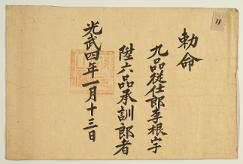 勅命
九品從仕郎李根宇
陞六品承訓郎者
光武四年一月十三日
11